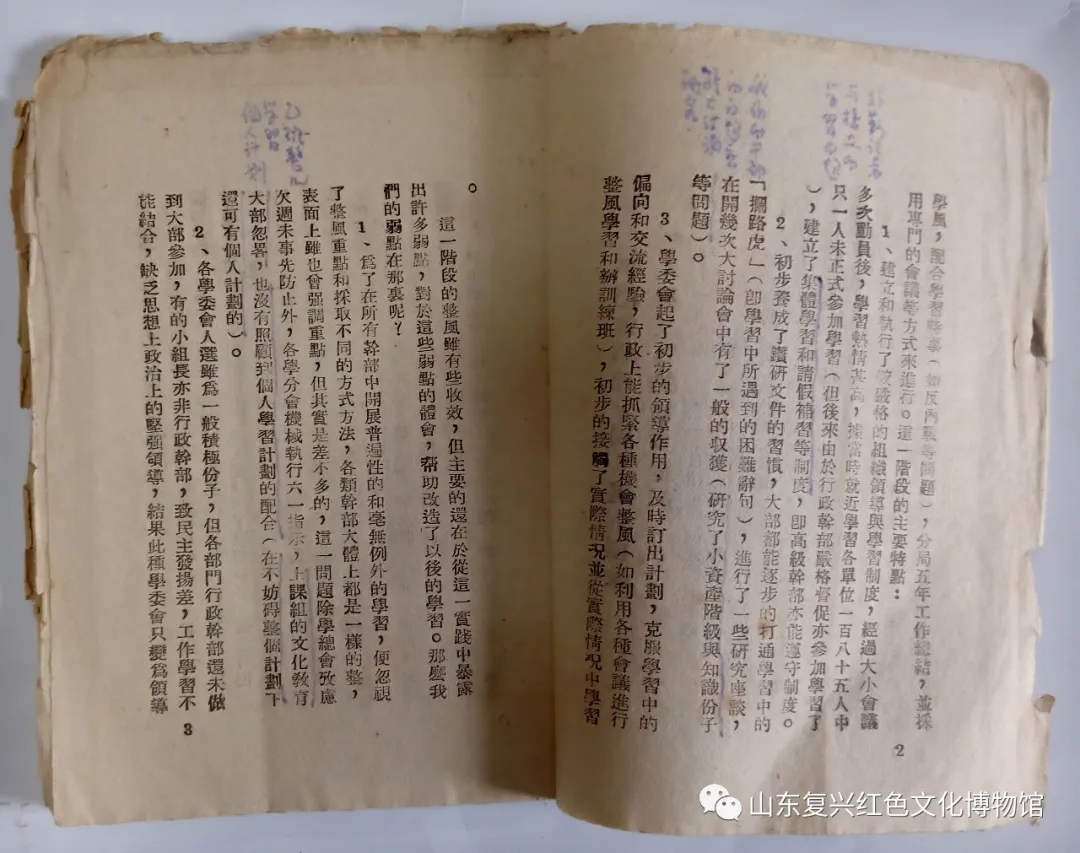 學風，配合學習時事（如反內戰等問題），分局五年工作總結，並採
用專門的會議等方式來進行。這一階段的主要特點：
1、建立和執行了較嚴格的組織領導與學習制度，經過大小會議
多次動員後，學習熱情甚高，據當時就近學習各單位一百八十五人中
只一人未正式參加學習（但後來由於行政幹部嚴格督促亦參加學習了
），建立了集體學習和請假補習等制度，即高級幹部亦能遵守制度。
2、初步養成了鑽研文件的習慣，大部都能逐步的打通學習中的
「攔路虎」（即學習中所遇到的困難辭句），進行了一些研究座談，
在開幾次大討論會中有了一般的收獲（研究了小資產階級與知識份子
等問題）。
3、學委會起了初步的領導作用，及時訂出計劃，克服學習中的
偏向和交流經驗，行政上能抓緊各種機會整風（如利用各種會議進行
整風學習和辦訓練班），初步的接觸了實際情況並從實際情況中學習
2
。
這一階段的整風雖有些收效，但主要的還在於從這一實踐中暴露
出許多弱點，對於這些弱點的體會，帮助改造了以後的學習。那麽我
們的弱點在那裏呢？
1、爲了在所有幹部中開展普遍性的和毫無例外的學習，便忽視
了整風重點和採取不同的方式方法，各類幹部大體上都是一樣的整，
表面上雖也曾强調重點，但其實是差不多的，這一問題除學總會攷慮
欠週未事先防止外，各學分會機械執行六一指示，上課組的文化教育
大部忽畧，也沒有照顧到個人學習計劃的配合（在不妨碍整個計劃下
還可有個人計劃的）。
2、各學委會人選雖爲一般積極份子，但各部門行政幹部還未做
到大部參加，有的小組長亦非行政幹部，致民主發揚差，工作學習不
能結合，缺乏思想上政治上的堅强領導，結果此種學委會只變爲領導
3
學習
個人計划
山东复兴红色文化博物馆